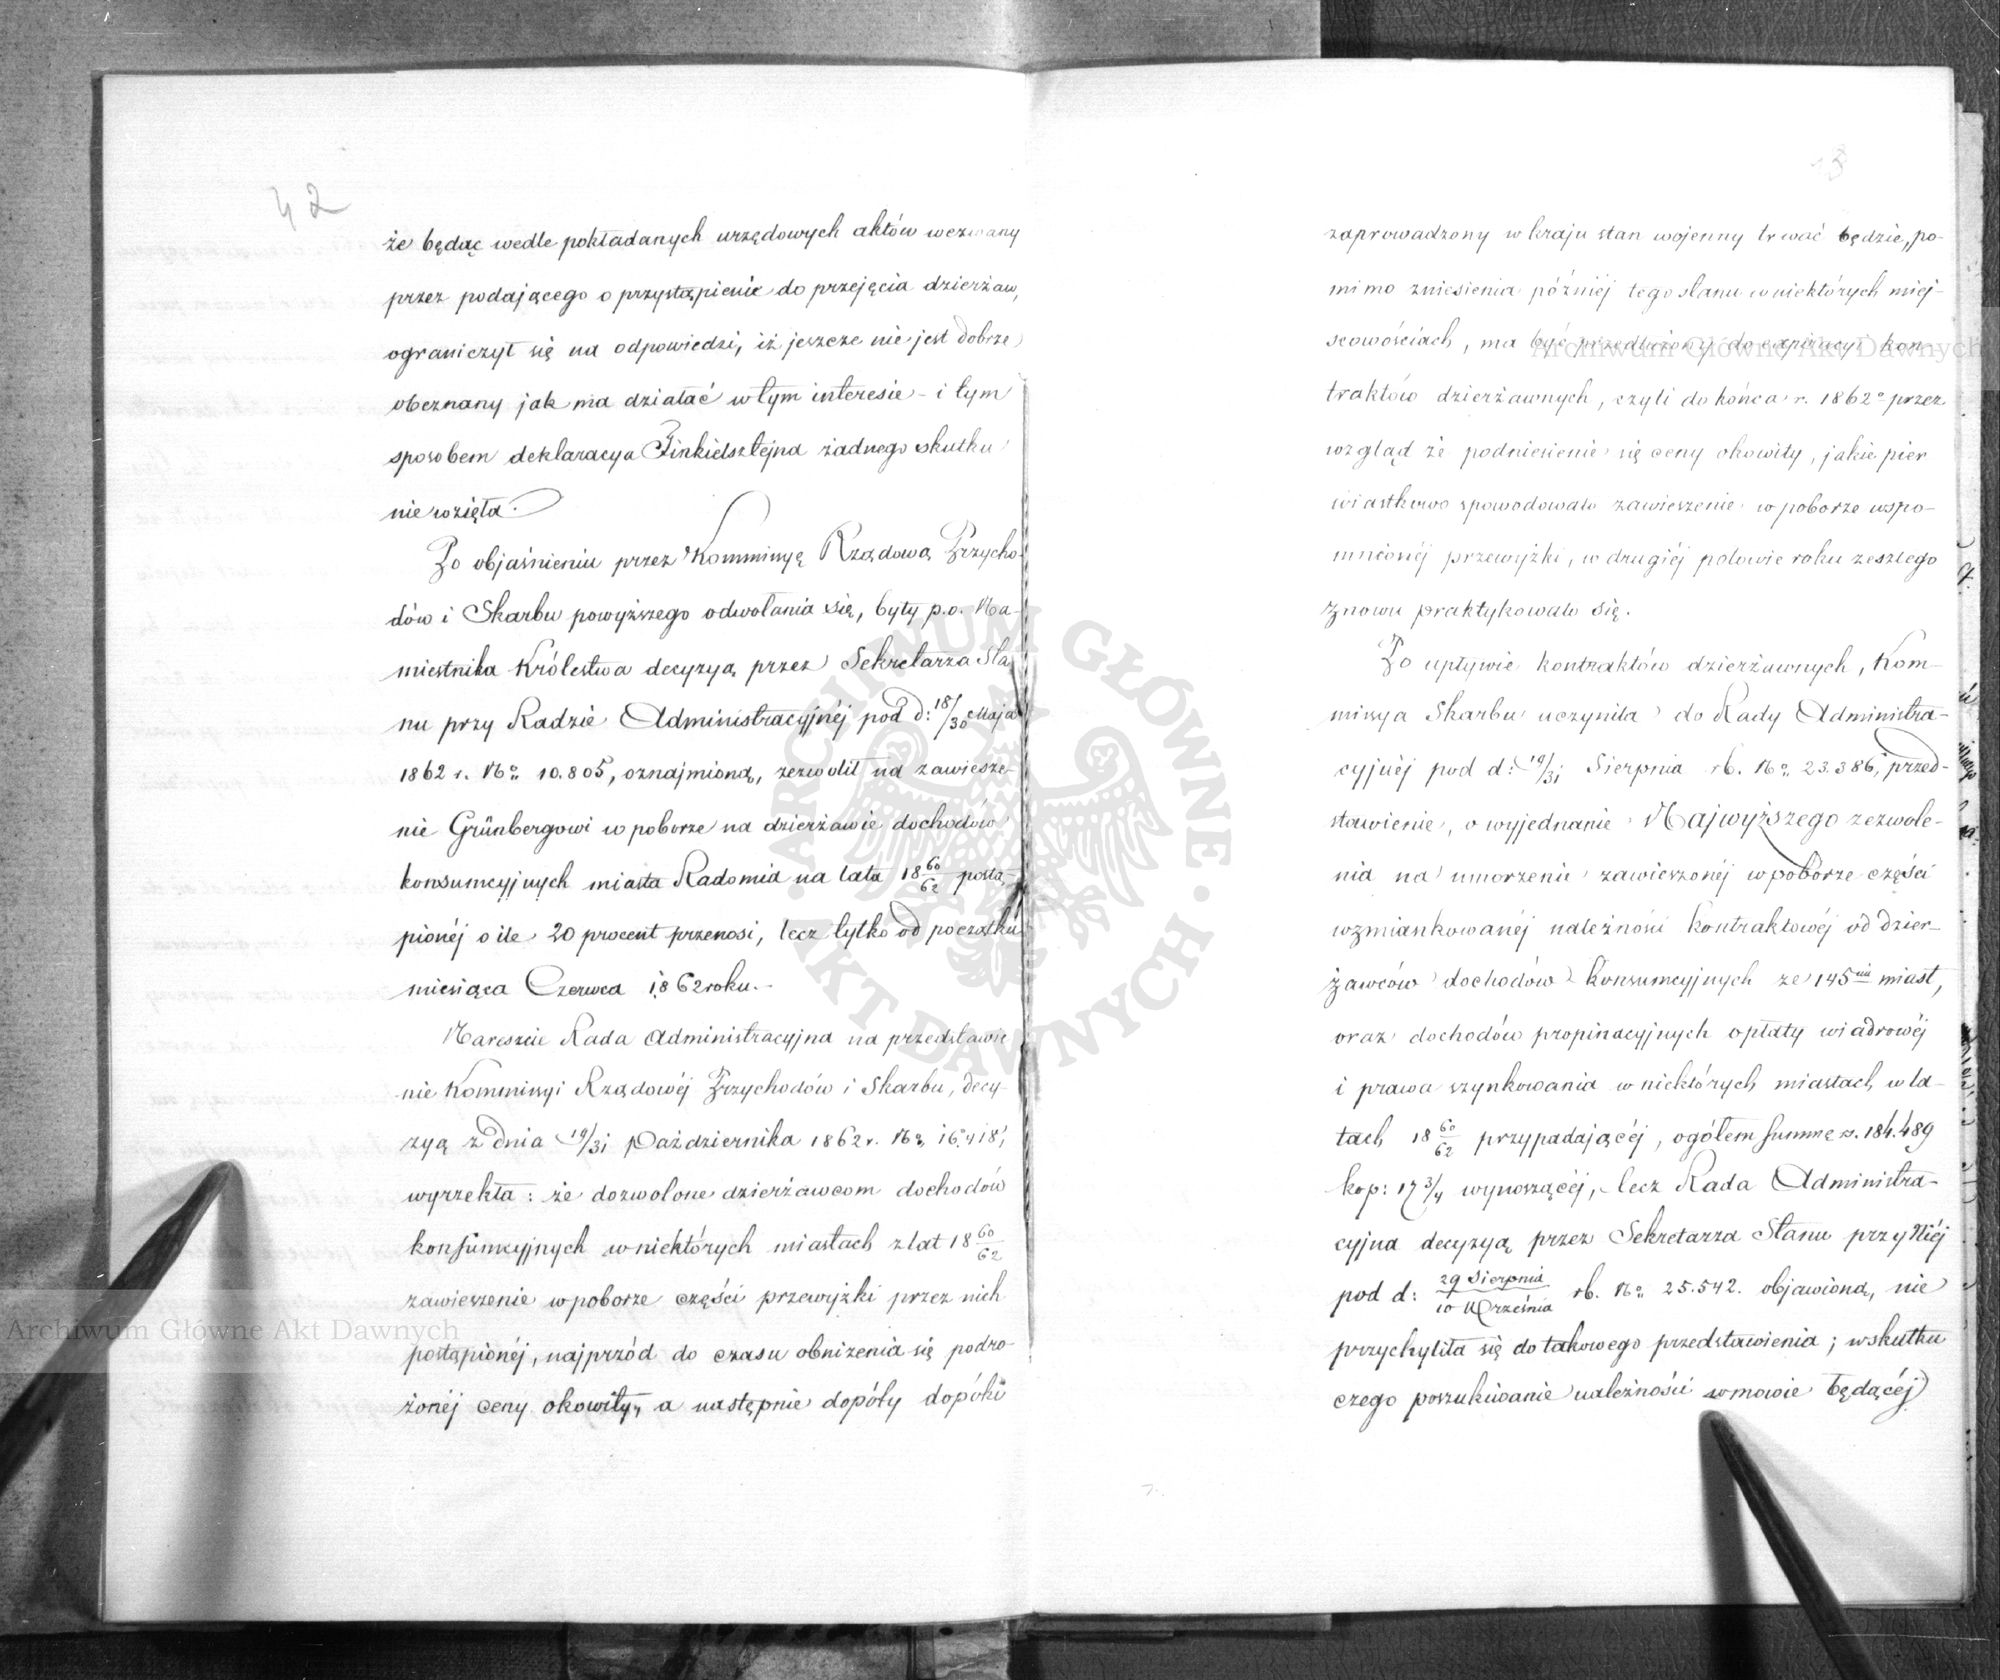 42
że będąc wedle pokładanych urzędowych aktów wezwany
przez podającego o przystąpienie do przejęcia dzierżaw,
ograniczył się na odpowiedzi, iż jeszcze nie jest dobrze
obeznany jak ma działać w tym interesie – i tym
sposobem deklaracya Finkielsztejna żadnego skutku
nie wzięła.
Po objaśnieniu przez Kommissyę Rządową Przycho-
dów i Skarbu powyższego odwołania się, były p.o. Na-
miestnika Królestwa decyzyą przez Sekretarza Sta-
nu przy Radzie Administracyjnéj pod d: 18/30 Maja
1862 r. No 10.805, oznajmioną, zezwolił na zawiesze-
nie Grünbergowi w poborze na dzierżawie dochodów
konsumcyjnych miasta Radomia na lata 18 60/62 postą-
pionéj o ile 20 procent przenosi, lecz tylko od początku
miesiąca Czerwca 1862 roku.-
Nareszcie Rada Administracyjna na przedstawie
nie Kommissyi Rządowéj Przychodów i Skarbu, decy-
zyą z dnia 19/31 Października 1862 r. No 16.418,
wyrzekła: że dozwolone dzierżawcom dochodów
konsumcyjnych w niektórych miastach z lat 18 60/62
zawieszenie w poborze części przewyżki przez nich
postąpionéj, najprzód do czasu obniżenia się podro-
żonéj ceny okowity, a następnie dopóty dopóki
zaprowadzony w kraju stan wojenny trwać będzie, po-
mimo zniesienia późniéj tego stanu w niektórych miej-
scowościach, ma być przedłużony do expiracyi kon-
traktów dzierżawnych, czyli do końca r. 1862o przez
wzgląd że podniesienie się ceny okowity, jakie pier
wiastkowo spowodowało zawieszenie w poborze wspo-
mnionéj przewyżki, w drugiéj połowie roku zeszłego
znowu praktykowało się.
Po upływie kontraktów dzierżawnych, Kom-
missya Skarbu uczyniła do Rady Administra-
cyjnéj pod d: 19/31 Sierpnia rb. No 23.386, przed-
stawienie, o wyjednanie Najwyższego zezwole-
nia na umorzenie zawieszonéj w poborze części
wzmiankowanéj należności kontraktowéj od dzier-
żawców dochodów konsumcyjnych ze 145ciu miast,
oraz dochodów propinacyjnych opłaty wiadrowéj
i prawa szynkowania w niektórych miastach w la-
tach 18 60/62 przypadającéj, ogółem summę rs. 184.489
kop: 17 3/4 wynoszącéj, lecz Rada Administra-
cyjna decyzyą przez Sekretarza Stanu przy Niéj
pod d: 29 Sierpnia/10 Września rb. No 25.542. objawioną, nie
przychyliła się do takowego przedstawienia; wskutku
czego poszukiwanie należności w mowie będącéj
Archiwum Główne Akt Dawnych
Archiwum Główne Akt Dawnych
ARCHIWUM GŁÓWNE · AKT DAWNYCH ·